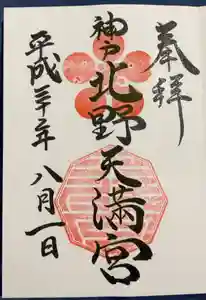 奉拝
神戸北野天満宮
平成三十年八月一日